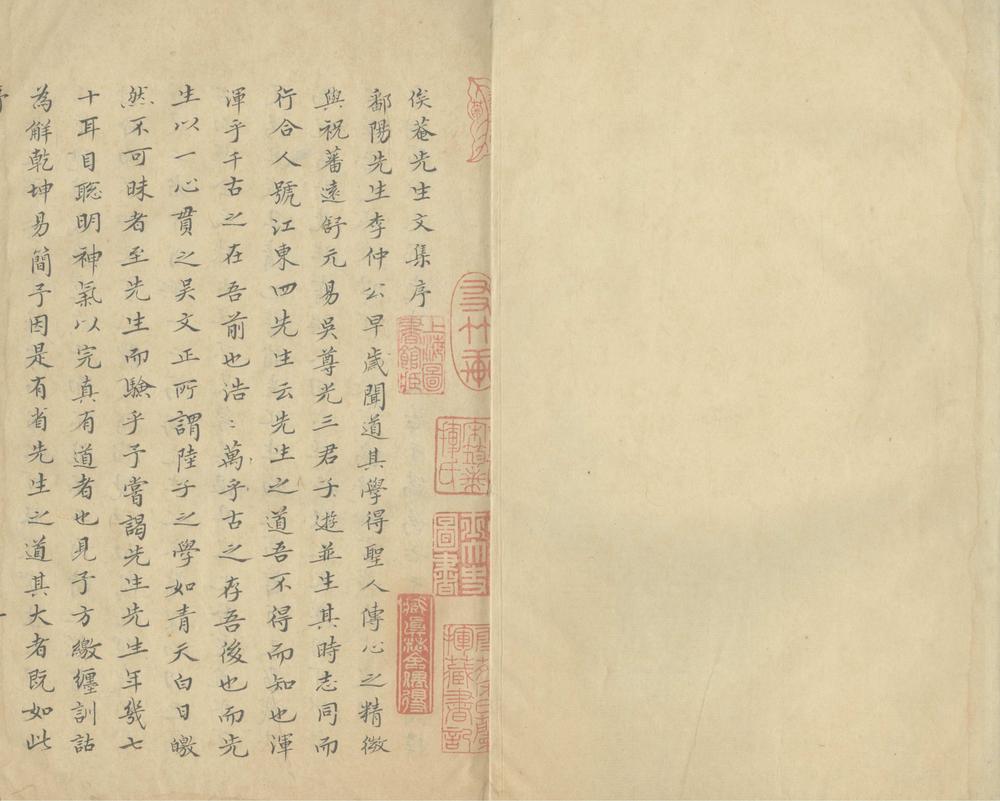 俟菴先生文集序
鄱陽先生李仲公早歲聞道其學得聖人傳心之精微
與祝蕃遠舒元易吳尊光三君子遊並生其時志同而
行合人號江東四先生云先生之道吾不得而知也渾
渾乎千古之在吾前也浩:萬乎古之存吾後也而先
生以一心貫之吳文正所謂陸子之學如青天白日皦
然不可昧者至先生而驗乎予嘗謁先生先生年幾七
十耳目聡明神氣以完真有道者也見予方繳纏訓詁
為解乾坤易簡予因是有省先生之道其大者既如此
序
一
上海圖書館藏
圖書
揮藏書記